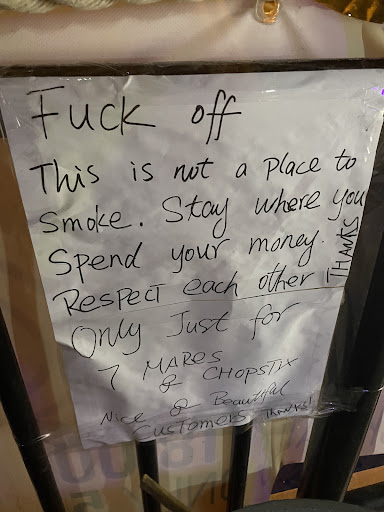 Fuck off
This is not a Place to
Smoke. Stay where you
Spend your money.
Respect each other THANKS
Only Just for
7 MARES
& CHOPSTIX
Nice & Beautiful
Customers Thanks!